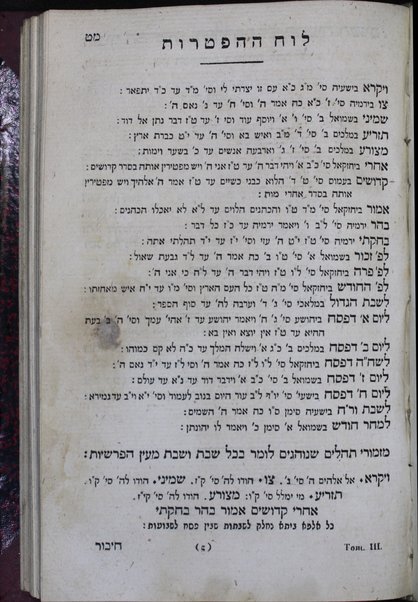 מט
לוח ההפטרות
ויקרא בישעיה סי' מ"ג כ"א עם זו יצרתי לי וסי' מ"ד עד כ"ד יתפאר:
צו בירמיה סי' ז' כ"א כה אמר ה' וסי' ח' עד ג' נאם ה':
שמיני בשמואל ב' סי' ו' א' ויוסף עוד וסי' ז' עד ט"ז דבר נתן אל דוד:
תזריע במלכים ב' סי' ד' מ"ב ואיש בא וסי' ה' עד י"ט כברת ארץ:
מצורע במלכים ב' סי' ז' ג' וארבעה אנשים עד כ' בשער וימות:
אחרי ביחזקאל סי' כ"ב א' ויהי דבר ה' עד ט"ז אני ה' ויש מפטירין אותה בסדר קדושים:
קדושים בעמוס סי' ט' ז' הלוא כבני כשיים עד ט"ו אמר ה' אלהיך ויש מפטירין
אותה בסדר אחרי מות:
אמור ביחזקאל סי' מ"ד ט"ו והכהנים הלוים עד ל"א לא יאכלו הכהנים:
בהר ירמיה סי' ל"ב ו' ויאמר ירמיה עד כ"ז כל דבר:
בחקתי ירמיה סי' ט"ז י"ט ה' עזי וסי' י"ז עד י"ד תהלתי אתה:
לפ' זכור בשמואל א' סי' ט"ו ב' כה אמר ה' עד ל"ד גבעת שאול:
לפ' פרה ביחזקאל סי' ל"ו ט"ז ויהי דבר ה' עד ל"ח כי אני ה':
לפ' החודש ביחזקאל סי' מ"ה ט"ז כל העם הארץ וסי' מ"ו עד י"ח איש מאחזתו:
לשבת הגדול במלאכי סי' ג' ד' וערבה לה' עד סוף הספר:
ליום א' דפסח ביהושע סי' ג' ה' ויאמר יהושע עד ז' אהי' עמך וסי' ה' ב' בעת
ההיא עד ט"ו אין יוצא ואין בא:
ליום ב' דפסח במלכים ב' כ"ג א' וישלח המלך עד כ"ה לא קם כמוהו:
לשח"ה דפסח ביחזקאל סי' ל"ו ל"ז כה אמר ה' וסי' ל"ז עד י"ד נאם ה':
ליום ז' דפסח בשמואל ב' סי' כ"ב א' וידבר דוד עד נ"א עד עולם:
ליום ח' דפסח בישעי' סי' יו"ד ל"ב עוד היום בנוב לעמוד וסי' י"א וי"ב עד גמירא:
לשבת ור"ח בישעיה סימן ס"ו כה אמר ה' השמים:
למחר חודש בשמואל א' סימן כ' ויאמר לו יהונתן:
מזמורי תהלים שנוהגים לומר בכל שבת ושבת מעין הפרשיות:
ויקרא • אל אלהים ה' סי' נ'. צו • הודו לה' סי' ק"ז. שמיני • הודו לה' סי' ק"ו.
תזריע • מי ימלל סי' ק"ו: מצורע. הודו לה' סי' קי"ז.
אחרי קדושים אמור בהר בחקתי
כל אלמא ניתא נחלק לשנתות שנין פסח לשנועות:
Tom. III. (ג) חיבור